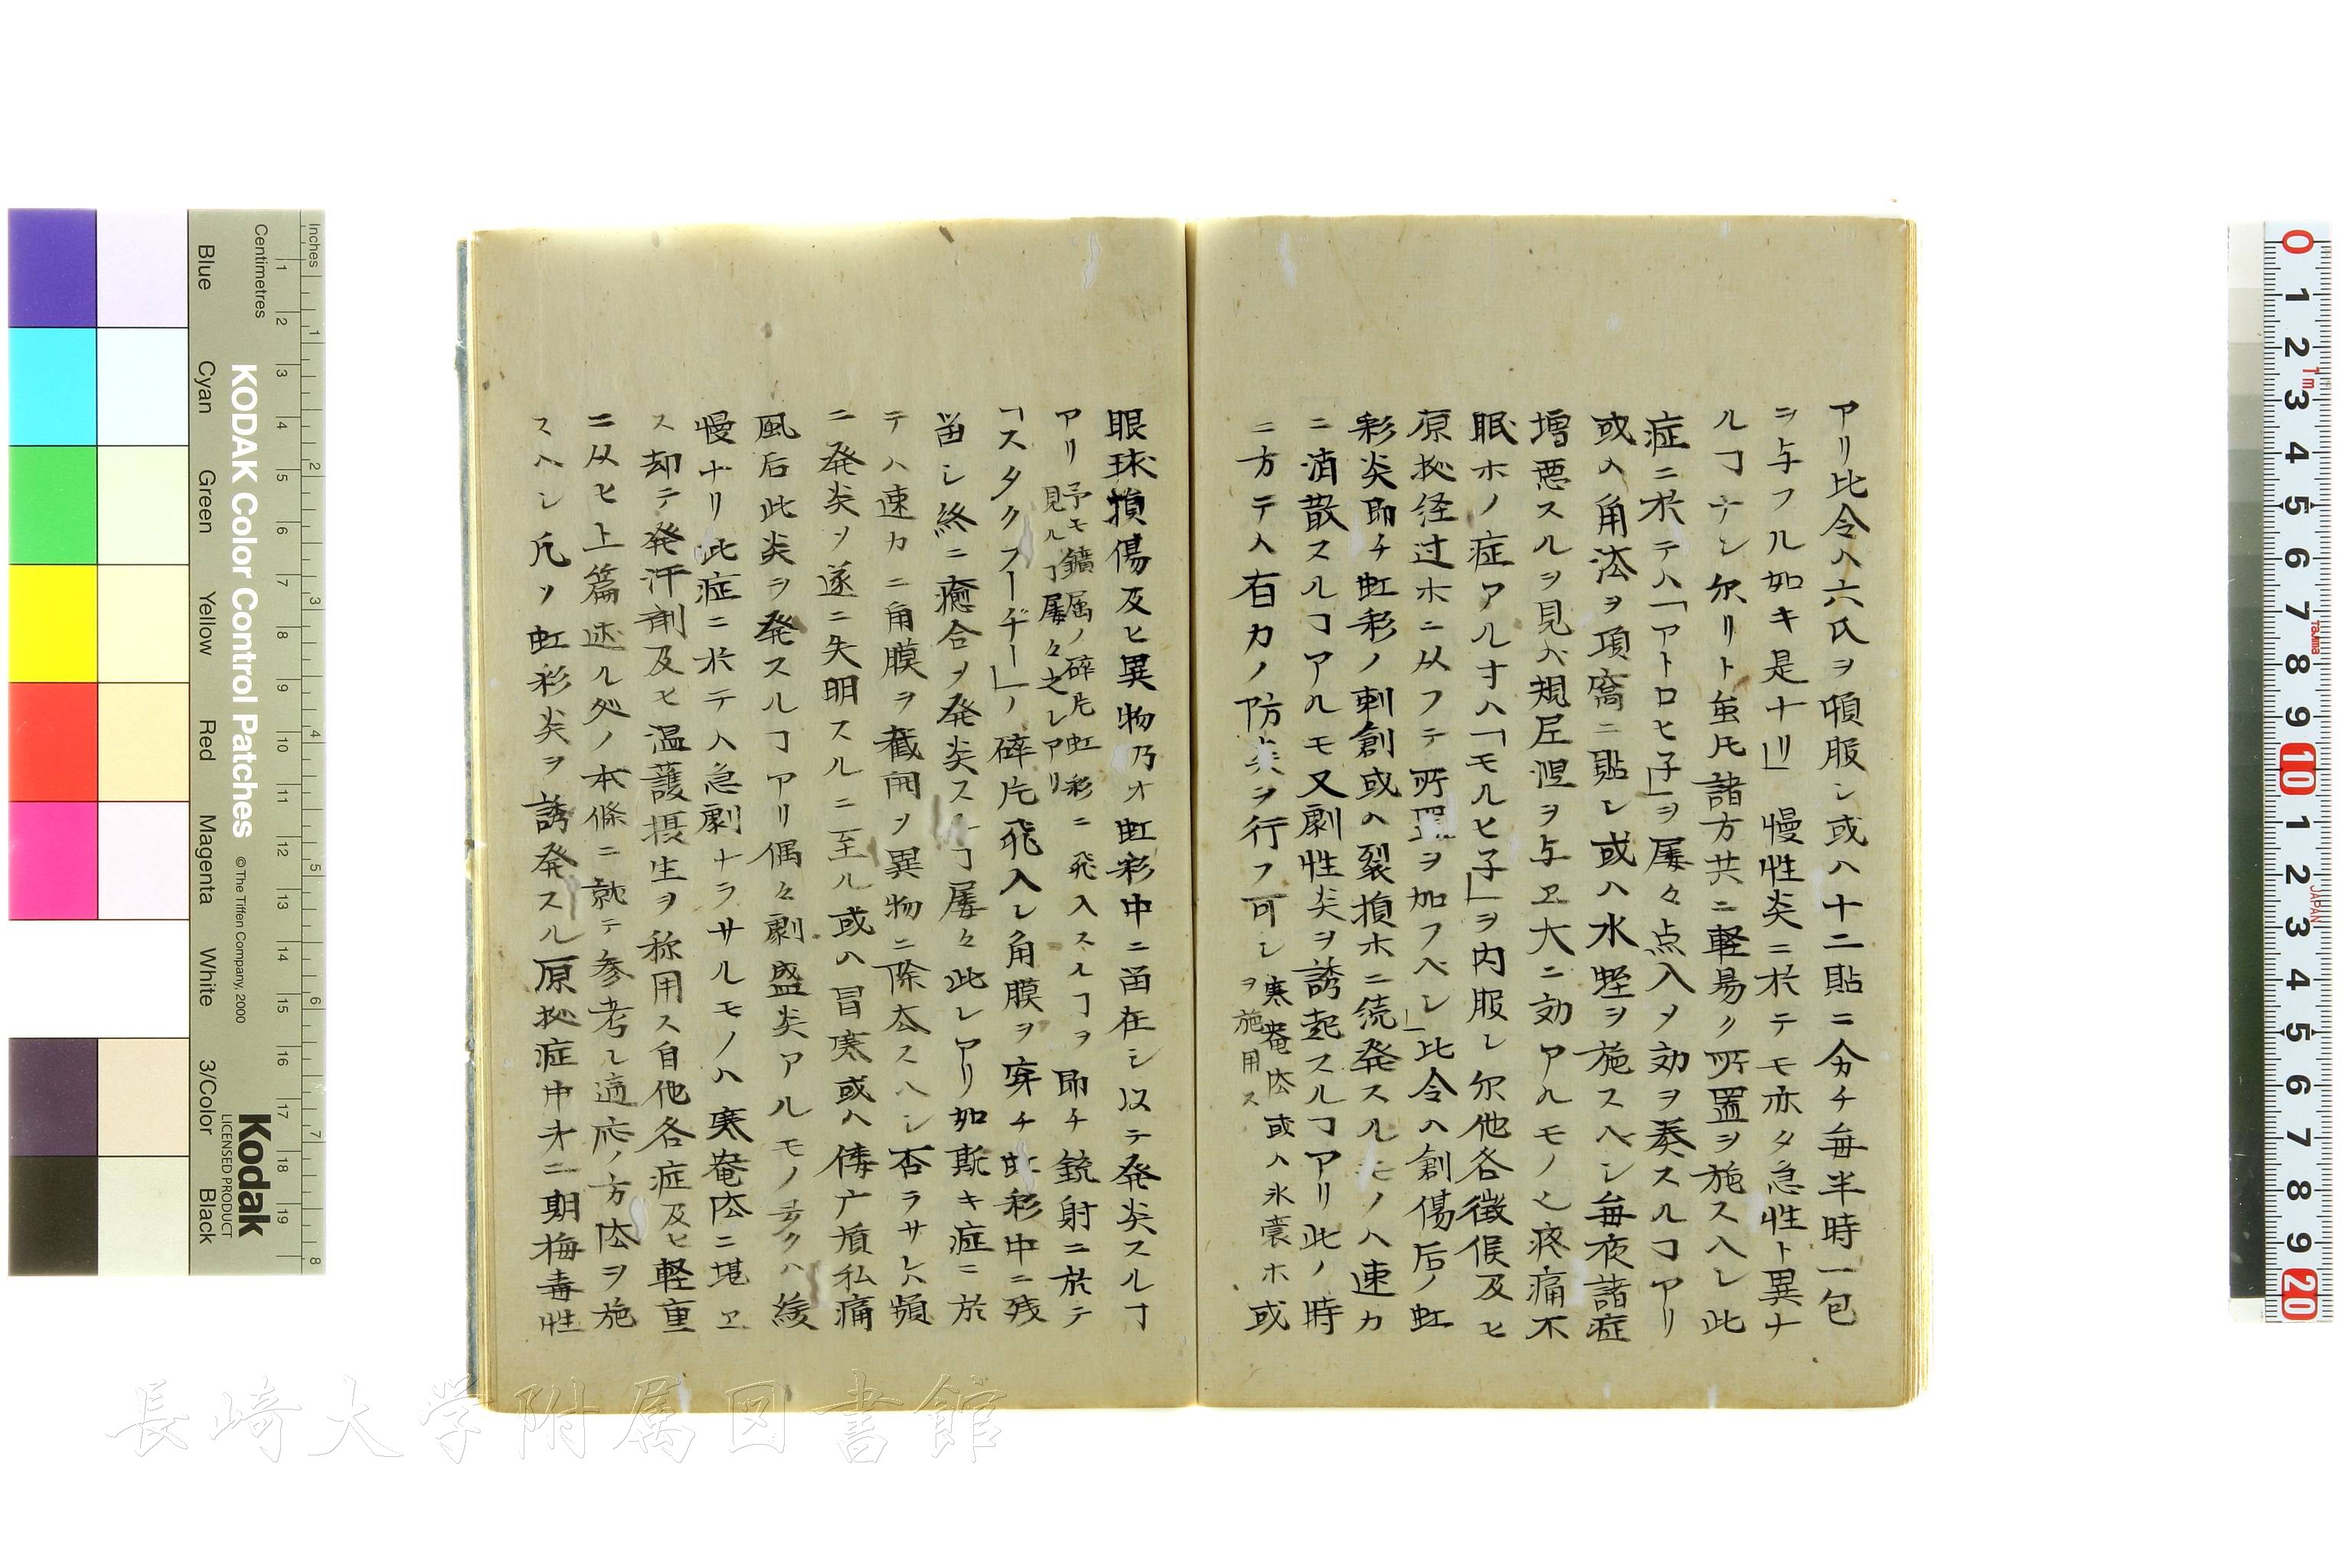 アリ比令ハ六氏ヲ頓服シ或ハ十二貼ニ分チ毎半時一包
ヲ与フル如キ是ナリ」慢性炎ニ於テモ亦タ急性ト異ナ
ルヿナシ尓リト虽𪜈諸方共ニ軽易ク所置ヲ施スヘシ此
症ニ於テハ「アトロヒ子」ヲ屢々点入メ効ヲ奏スルヿアリ
或ハ角法ヲ項窩ニ貼シ或ハ水蛭ヲ施スヘシ毎夜諸症
増悪スルヲ見ハ規尼涅ヲ与ヱ大ニ効アルモノ也疼痛不
眠ホノ症アルヿハ「モルヒ子」ヲ内服シ尓他各徴候及ヒ
原抋経过ホニ从フテ所置ヲ加フヘシ」比令ハ創傷后ノ虹
彩炎即チ虹彩ノ刺創或ハ裂損ホニ続発スルモノハ速カ
ニ消散スルヿアルモ又劇性炎ヲ誘起スルヿアリ此ノ時
ニ方テハ有力ノ防炎ヲ行フ可シ寒菴法或ハ氷嚢ホ或
ヲ施用ス
眼球損傷及ヒ異物乃才虹彩中ニ畄在シ以テ発炎スルヿ
アリ予モ鑛属ノ碎片虹彩ニ飛入スルヿヲ
見ルヿ屢々之レアリ
即チ銃射ニ於テ
「スタクフーヂー」ノ碎片飛入シ角膜ヲ穿チ虹彩中ニ残
畄シ終ニ癒合ヲ発炎スルヿ屢々此レアリ如斯キ症ニ於
テハ速カニ角膜ヲ截開ヲ異物ニ除去スヘシ否ラサレハ頻
ニ発炎ヲ遂ニ失明スルニ至ル或ハ冒寒或ハ僂广質私痛
風后此炎ヲ発スルヿアリ偶々劇盛炎アルモノ多クハ緩
慢ナリ此症ニ於テハ急劇ナラサルモノハ寒菴法ニ堪ヱ
ス却テ発汗剤及ヒ温護摂生ヲ称用ス自他各症及ヒ軽重
ニ从ヒ上篇述ル処ノ本條ニ就テ参考シ適応ノ方法ヲ施
スヘシ凡ソ虹彩炎ヲ誘発スル原抋症中才二期梅毒性
長崎大学附属図書館
KODAK Color Control Patches
© The Tiffen Company, 2000
Kodak
LICENSED PRODUCT
Inches
Centimetres
Blue
Cyan
Green
Yellow
Red
Magenta
White
3/Color
Black